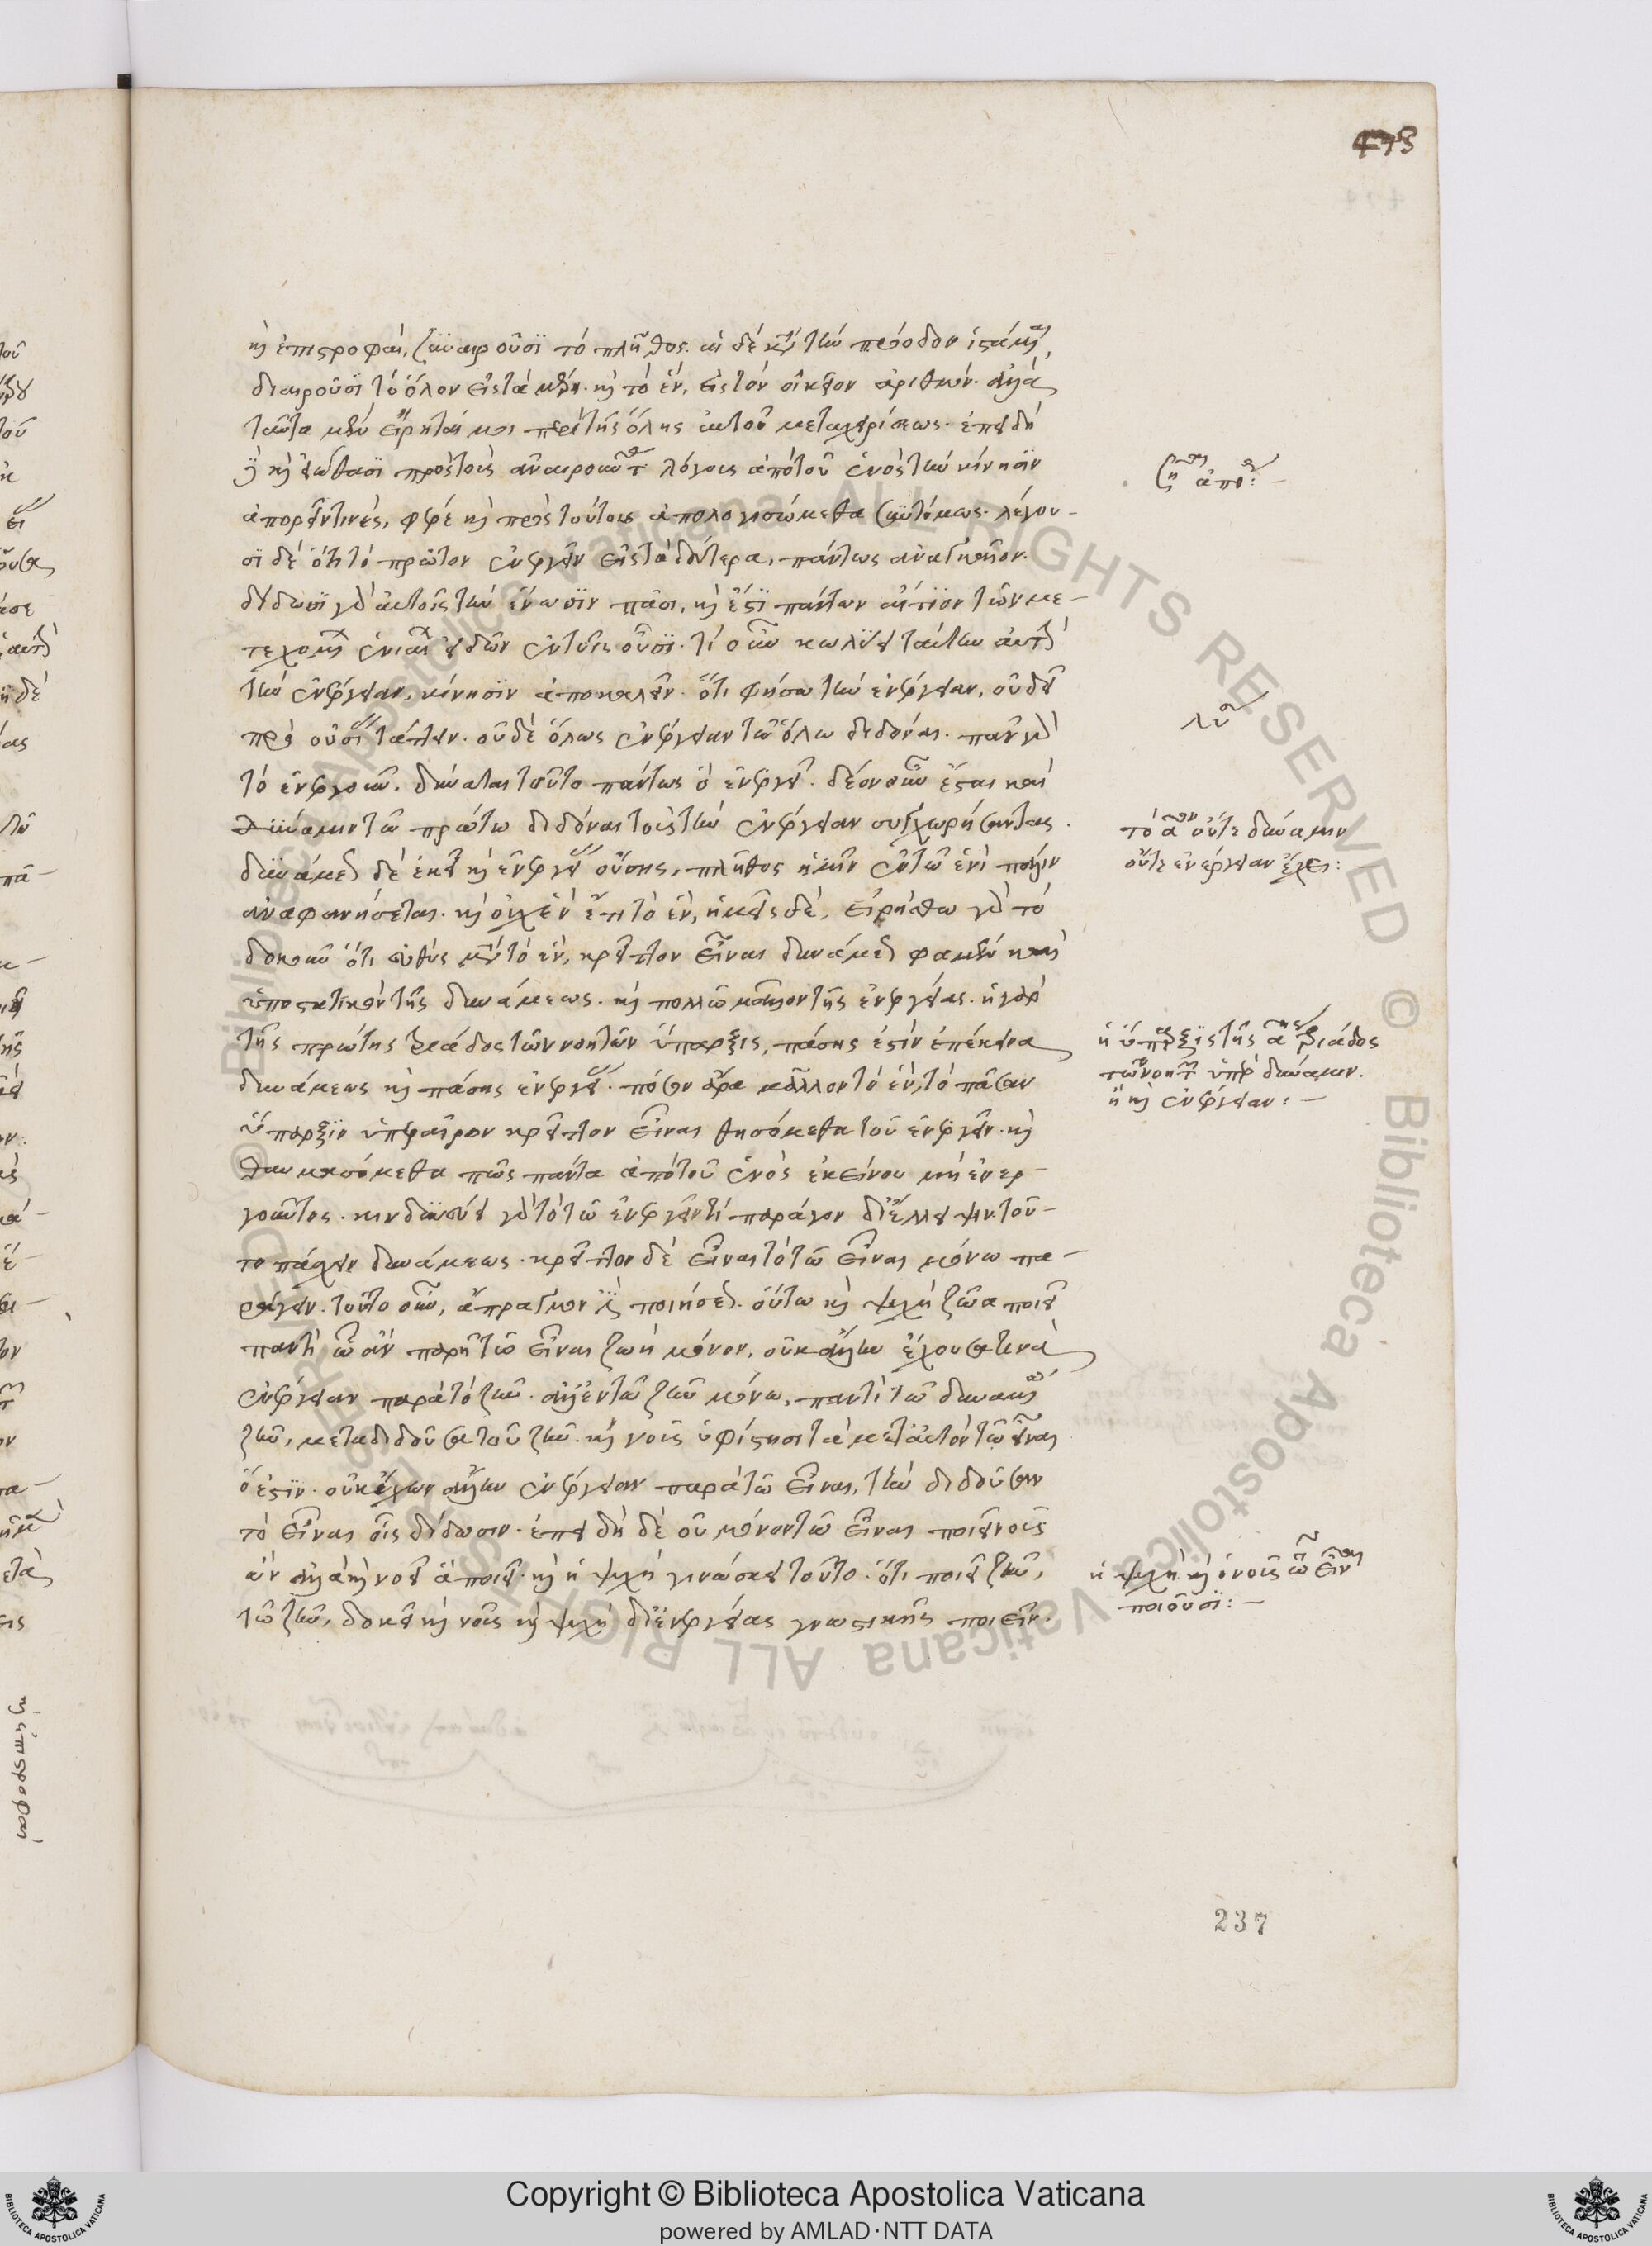 475
καὶ ἐπιστροφαὶ, συναιροῦσι τὸ πλῆθος. αἱ δὲ κατὰ τὴν πρόοδον ἱστάμεναι,
διαιροῦσι τὸ ὅλον εἰς τὰ μέρη. καὶ τὸ ἓν, εἰς τὸν οἰκεῖον ἀριθμόν. ἀλλὰ
ταῦτα μὲν εἰρήσθω μοι περὶ τῆς ὅλης αὐτοῦ μεταχειρίσεως. ἐπειδὴ
καὶ εἰώθασι πρὸς τοὺς ἀναιροῦντας λόγους ἀπὸ τοῦ ἑνὸς τὴν κίνησιν
ἀπορεῖν τινὲς, φέρε καὶ πρὸς τούτους ἀπολογισώμεθα συντόμως. λέγου-
σι δὲ ὅτι τὸ πρῶτον ἐνεργεῖν εἰς τὰ δεύτερα, πάντως ἀναγκαῖον.
δίδωσι γὰρ αὐτοῖς τὴν ἕνωσιν πᾶσι, καὶ ἔστι πάντων αἴτιον τῶν με-
τεχομένων ἑνιαίων εἰδῶν ἐν τοῖς οὖσι. τί οὖν κωλύει ταύτην αὐτοῦ
τὴν ἐνέργειαν, κίνησιν ἀποκαλεῖν. ὅτι φήσω τὴν ἐνέργειαν, οὐ δεῖ
πρὸ οὐσίας τάττειν. οὐδὲ ὅλως ἐνέργειαν τῷ ὅλω διδόναι. πᾶν γὰρ
τὸ ἐνεργοῦν, δύναται τοῦτο πάντως ὃ ἐνεργεῖ. δέον οὖν ἔσται καὶ
δύναμιν τῷ πρώτω διδόναι τοὺς τὴν ἐνέργειαν συγχωρήσαντας.
δυνάμεως δὲ ἐκεῖ καὶ ἐνεργείας οὔσης, πλῆθος ἡμῖν ἐν τῷ ἑνὶ πάλιν
ἀναφανήσεται. καὶ οὐχ ἓν ἔτι τὸ ἓν, ἡμεῖς δὲ, εἰρήσθω γὰρ τὸ
δοκοῦν ὅτι εὐθὺς μὲν τὸ ἓν, κρεῖττον εἶναι δυνάμεως φαμὲν καὶ
ὑποστατικὸν τῆς δυνάμεως. καὶ πολλῷ μᾶλλον τῆς ἐνεργείας. ἡ γὰρ
τῆς πρώτης τριάδος τῶν νοητῶν ὕπαρξις, πάσης ἐστὶν ἐπέκεινα
δυνάμεως καὶ πάσης ἐνεργείας. πόσω ἄρα μᾶλλον τὸ ἓν, τὸ πᾶσαν
ὕπαρξιν ὑπεραῖρον κρεῖττον εἶναι θησόμεθα τοῦ ἐνεργεῖν. καὶ
θαυμασόμεθα πῶς πάντα ἀπὸ τοῦ ἑνὸς ἐκείνου μὴ ἐνερ-
γοῦντος. κινδυνεύει γὰρ τὸ τῷ ἐνεργεῖν τι παράγον δι' ἔλλειψιν τοῦ-
το πάσχειν δυνάμεως. κρεῖττον δὲ εἶναι τὸ τῷ εἶναι μόνω πα-
ράγειν. τοῦτο οὖν, ἄπραγμον τῆς ποιήσεως. οὕτω καὶ ψυχὴ ζῶα ποιεῖ
παντὶ ᾧ ἂν παρῇ τῷ εἶναι ζωὴ μόνον, οὐκ ἄλλην ἔχουσα τινὰ
ἐνέργειαν παρὰ τὸ ζῆν. ἀλλ' ἐν τῷ ζῆν μόνω, παντὶ τῷ δυναμένω
ζῆν, μεταδιδοῦσα τοῦ ζῆν. καὶ νοῦς ὑφίστησι τὰ μετ' αὐτὸν τῷ εἶναι
ὅ ἐστιν. οὐκ ἔχων ἄλλην ἐνέργειαν παρὰ τῷ εἶναι, τὴν διδοῦσαν
τὸ εἶναι οἷς δίδωσιν. ἐπειδὴ δὲ οὐ μόνον τῷ εἶναι ποιεῖ νοῦς
ὢν ἀλλὰ καὶ νοεῖ ἃ ποιεῖ. καὶ ἡ ψυχὴ γινώσκει τοῦτο. ὅτι ποιεῖ ζῆν,
τῷ ζῆν, δοκεῖ καὶ νοῦς καὶ ψυχὴ δι' ἐνεργείας γνωστικῆς ποιεῖν.
τὸ αον οὔτε δύναμιν
οὔτε ἐνέργειαν ἔχει:
ἡ ὕπαρξις τῆς αης τριάδος
τῶν νοητῶν ὑπὲρ δύναμιν.
ἢ καὶ ἐνέργειαν: –
ἡ ψυχὴ καὶ ὁ νοῦς τῷ εἶναι
ποιοῦσι: –
237
© Biblioteca Apostolica Vaticana ALL RIGHTS RESERVED
Copyright © Biblioteca Apostolica Vaticana
powered by AMLAD·NTT DATA
BIBLIOTECA APOSTOLICA VATICANA
BIBLIOTECA APOSTOLICA VATICANA